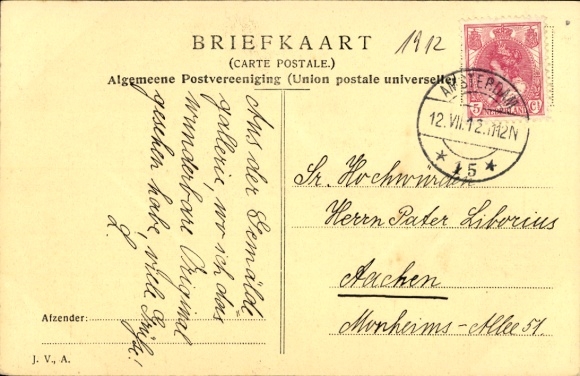 BRIEFKAART
(CARTE POSTALE.)
Algemeene Postvereeniging (Union postale universelle)
1912
AMSTERDAM
12.VII.12. 11-12N
5
5 NEDERLAND Ct
Aus der Gemälde
gallerie, wo ich das
wunderbare Original
gesehen habe, viele Grüße!
L.
Sr. Hochwürden
Herrn Pater Liborius
Aachen
Monheims-Allee 51.
Afzender:
J. V., A.